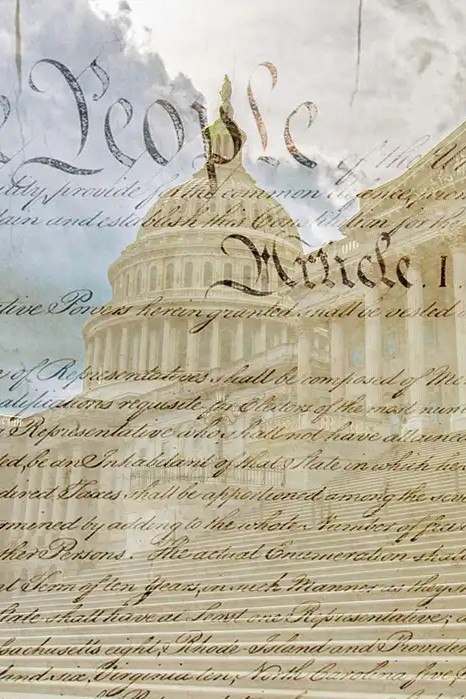 e People
of the U
provide for the common
ain and establish this
Article. 1.
ative Powers herein granted shall be vested
e of Representatives shall be composed of Me
alifications requisite for Electors of the most nume
Representative who shall not have attained
ed, be an Inhabitant of that State in which
dered Taxes shall be apportioned among the seve
ermined by adding to the whole Number of free
ther Persons. The actual Enumeration shall
t Term of ten Years, in such Manner as they
State shall have at Least one Representative;
sachusetts eight, Rhode-Island and Providen
and six, Virginia ten, North Carolina five,